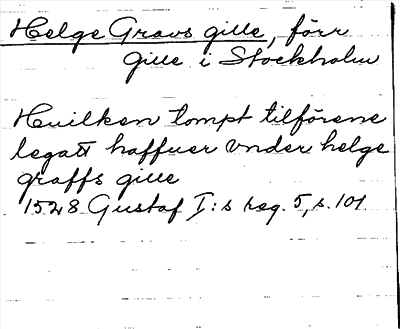 Helge Gravs gille, förr
gille i Stockholm
Huilken tompt tilförene
legatt haffuer vnder helge
graffs gille
1528 Gustaf I:s reg. 5, s. 101.